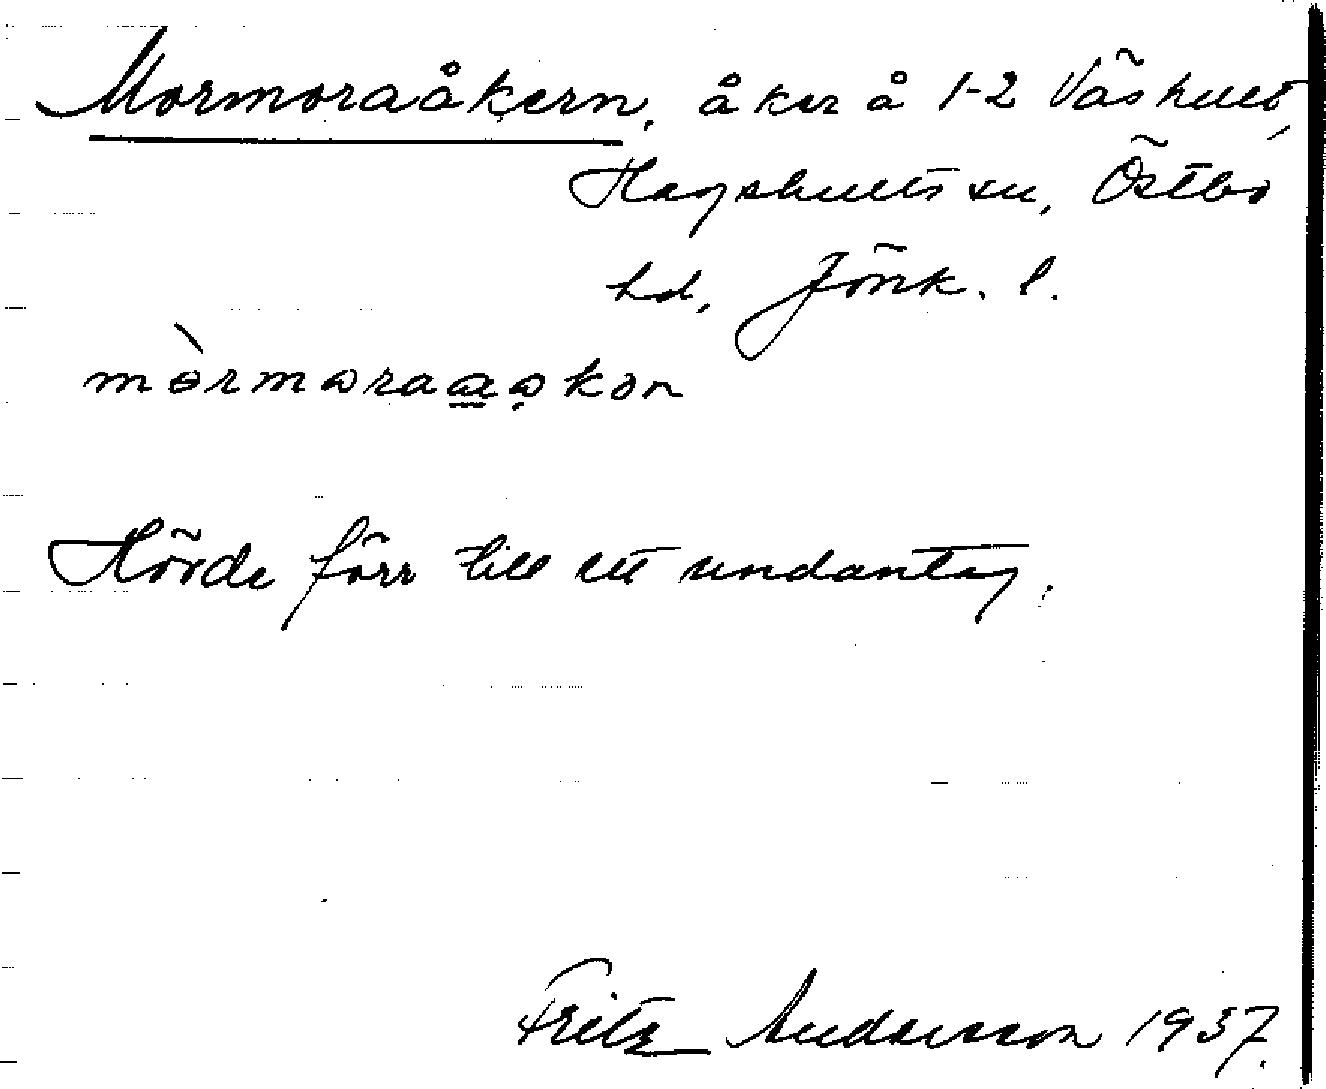 Mormoraåkern, åker å 1-2 Väshult,
Hagshults sn, Östbo
hd, Jönk. l.
mòrmɷraaɷkən
Hörde förr till ett undantag.
Fritz Andersson 1937.